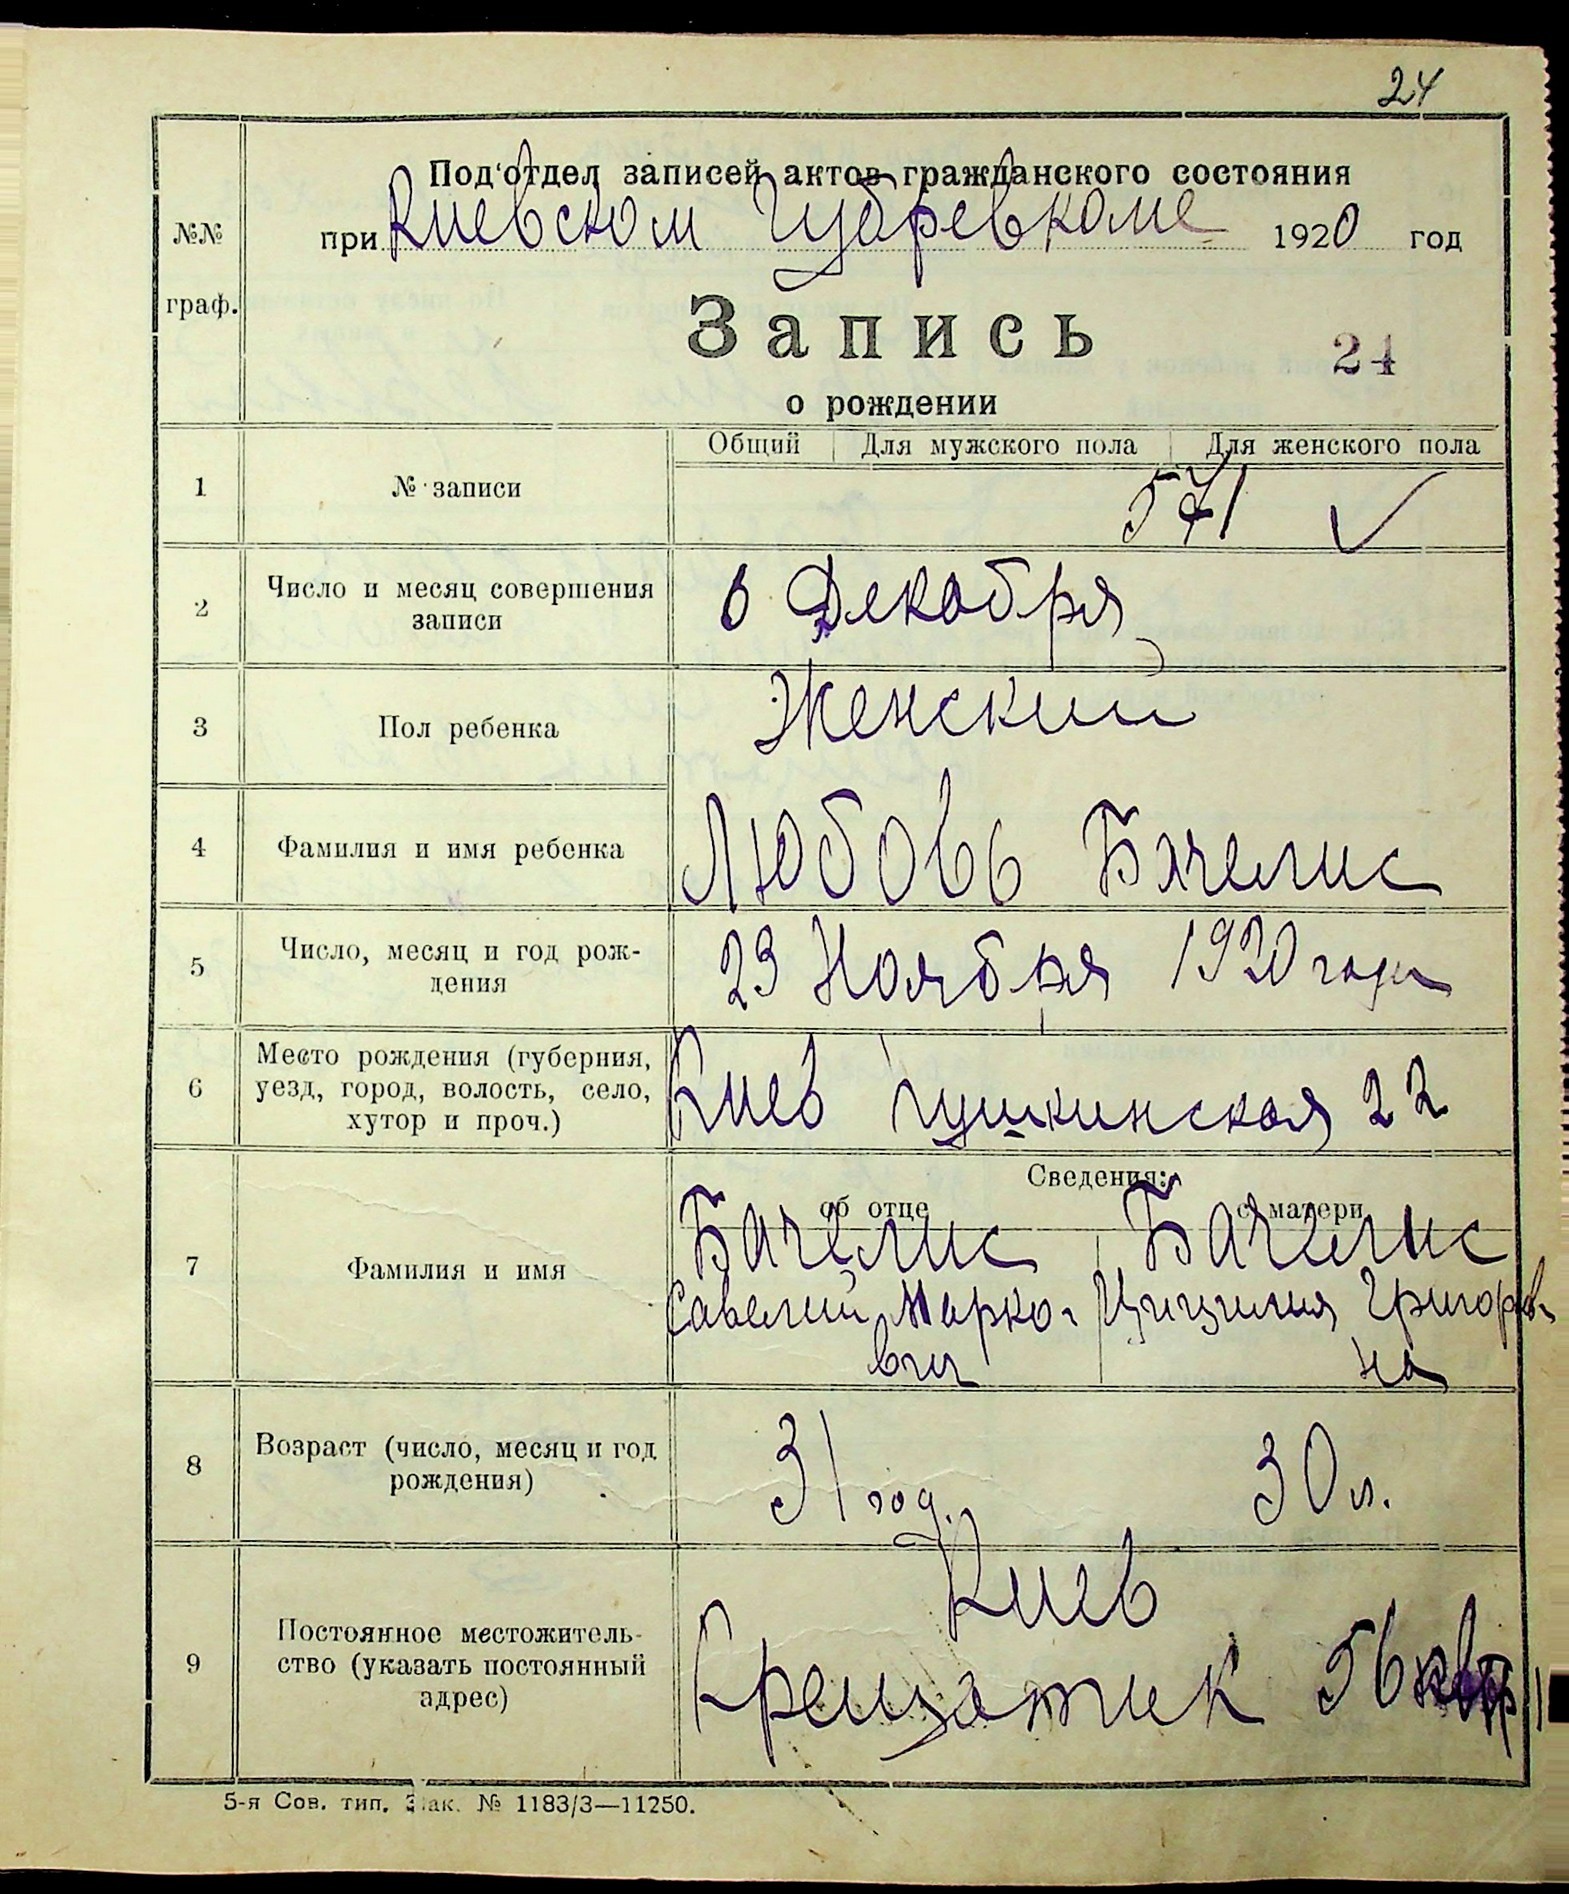 24
Под'отдел записей актов гражданского состояния
№№ граф.
при Киевском Губревкоме 1920 год
Запись
24
о рождении
Общий Для мужского пола Для женского пола
1 № записи 571
2 Число и месяц совершения
записи
6 Декабря
3 Пол ребенка Женский
4 Фамилия и имя ребенка Любовь Бачелис
5 Число, месяц и год рож-
дения
23 Ноября 1920 года
6 Место рождения (губерния,
уезд, город, волость, село,
хутор и проч.)
Киев Пушкинская 22
Сведения:
об отце о матери
7 Фамилия и имя
Бачелис Бачелис
Савелий Марко- Цицилия Григоров-
вич на
8 Возраст (число, месяц и год
рождения)
31 год. 30 л.
9 Постоянное местожитель-
ство (указать постоянный
адрес)
Киев
Крещатик 56
5-я Сов. тип. Зак. № 1183/3—11250.